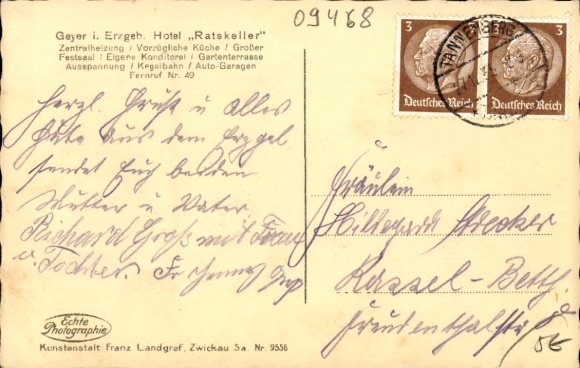 09468
Geyer i. Erzgeb. Hotel „Ratskeller"
Zentralheizung / Vorzügliche Küche / Großer
Festsaal / Eigene Konditorei / Gartenterrasse
Ausspannung / Kegelbahn / Auto-Garagen
Fernruf Nr. 49
3 3
Deutsches Reich Deutsches Reich
TANNENBERG
Herzl. Grüße u alles
Gute aus dem Erzgeb
sendet Euch beiden
Mutter u Vater
Richard Groß mit Frau
u. Tochter.
Fräulein
Hildegard
Kassel-Betth.
Freudenthalstr
Echte
Photographie
Kunstanstalt Franz Landgraf, Zwickau Sa. Nr. 9556